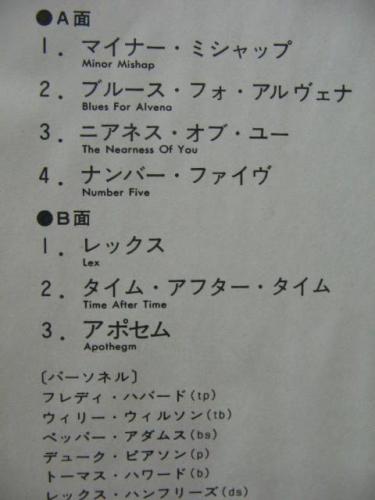 ●A面
1. マイナー・ミシャップ
Minor Mishap
2. ブルース・フォ・アルヴェナ
Blues For Alvena
3. ニアネス・オブ・ユー
The Nearness Of You
4. ナンバー・ファイヴ
Number Five
●B面
1. レックス
Lex
2. タイム・アフター・タイム
Time After Time
3. アポセム
Apothegm
〔パーソネル〕
フレディ・ハバード(tp)
ウィリー・ウィルソン(tb)
ペッパー・アダムス(bs)
デューク・ピアソン(p)
トーマス・ハワード(b)
レックス・ハンフリーズ(ds)